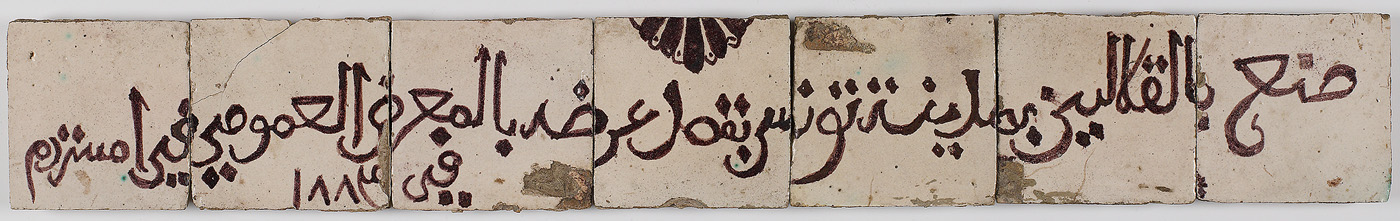 صنع بالقلالين بمدينة تونس بقصد عرضه بالمعرض العمومي في امستردم
في ١٨٨٣